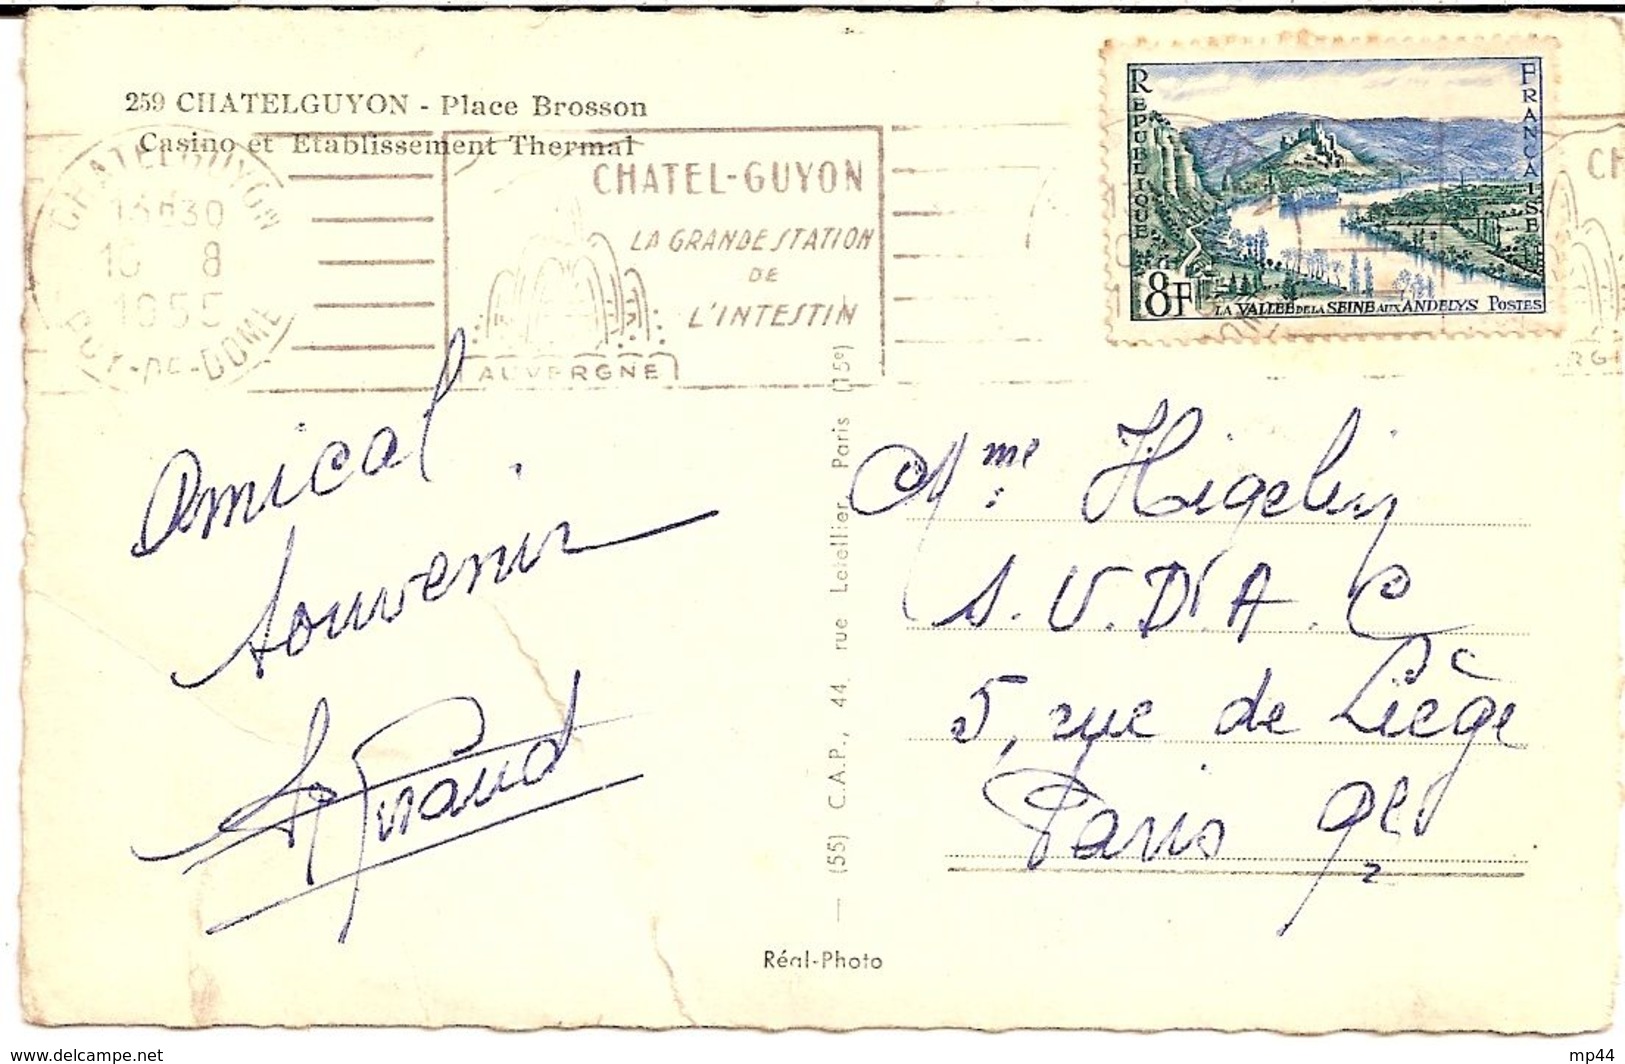 259 CHATELGUYON - Place Brosson
Casino et Etablissement Thermal
CHATELGUYON
13H30
8
1955
PUY-DE-DOME
CHATEL-GUYON
LA GRANDE STATION
DE
L'INTESTIN
AUVERGNE
REPUBLIQUE
FRANCAISE
8F
LA VALLEE DE LA SEINE AUX ANDELYS POSTES
CH
RGI
Amical
souvenir
Mme Higelin
S.U.D.A.C
5, rue de Liège
Paris 9e
(55) C.A.P., 44 rue Letellier, Paris (15e)
Réal-Photo
www.delcampe.net
mp44